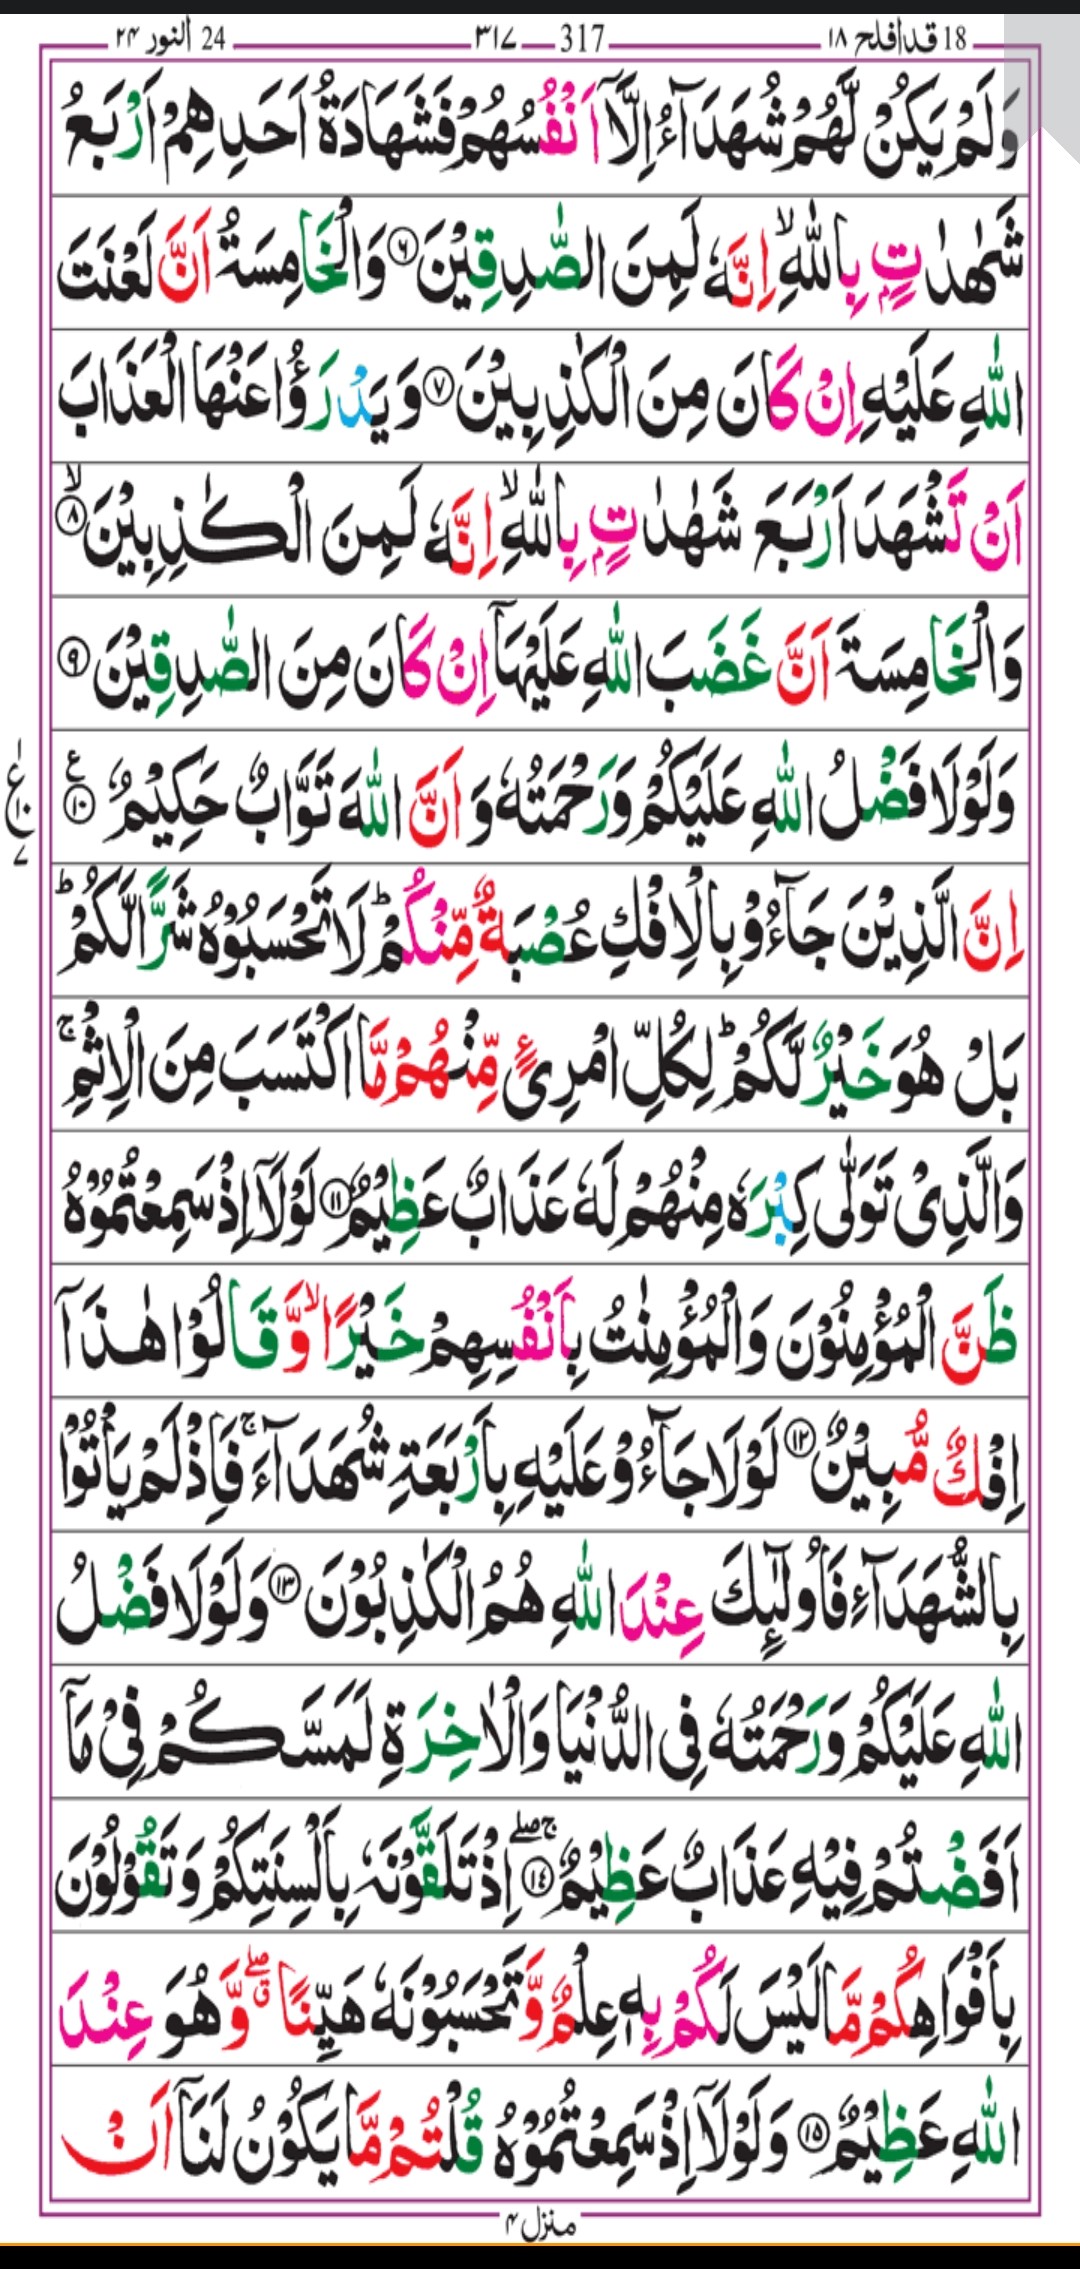 18 قدافلح ١٨ 317 ٣١٧ 24 النور ٢٤
وَلَمْ يَكُنْ لَّهُمْ شُهَدَآءُ اِلَّاۤ اَنْفُسُهُمْ فَشَهَادَةُ اَحَدِهِمْ اَرْبَعُ
شَهٰدٰتٍۭ بِاللّٰهِ ۙ اِنَّهٗ لَمِنَ الصّٰدِقِيْنَ ﴿۶﴾ وَالْخَامِسَةُ اَنَّ لَعْنَتَ
اللّٰهِ عَلَيْهِ اِنْ كَانَ مِنَ الْكٰذِبِيْنَ ﴿۷﴾ وَ يَدْرَؤُا عَنْهَا الْعَذَابَ
اَنْ تَشْهَدَ اَرْبَعَ شَهٰدٰتٍۭ بِاللّٰهِ ۙ اِنَّهٗ لَمِنَ الْكٰذِبِيْنَ ۙ﴿۸﴾
وَالْخَامِسَةَ اَنَّ غَضَبَ اللّٰهِ عَلَيْهَاۤ اِنْ كَانَ مِنَ الصّٰدِقِيْنَ ﴿۹﴾
وَلَوْلَا فَضْلُ اللّٰهِ عَلَيْكُمْ وَرَحْمَتُهٗ وَ اَنَّ اللّٰهَ تَوَّابٌ حَكِيْمٌ ﴿۱۰﴾ ع
اِنَّ الَّذِيْنَ جَآءُوْ بِالْاِفْكِ عُصْبَةٌ مِّنْكُمْ ؕ لَا تَحْسَبُوْهُ شَرًّا لَّكُمْ ؕ
بَلْ هُوَ خَيْرٌ لَّكُمْ ؕ لِكُلِّ امْرِئٍ مِّنْهُمْ مَّا اكْتَسَبَ مِنَ الْاِثْمِ ۚ
وَالَّذِيْ تَوَلّٰى كِبْرَهٗ مِنْهُمْ لَهٗ عَذَابٌ عَظِيْمٌ ﴿۱۱﴾ لَوْلَاۤ اِذْ سَمِعْتُمُوْهُ
ظَنَّ الْمُؤْمِنُوْنَ وَالْمُؤْمِنٰتُ بِاَنْفُسِهِمْ خَيْرًا ۙ وَّ قَالُوْا هٰذَاۤ
اِفْكٌ مُّبِيْنٌ ﴿۱۲﴾ لَوْلَا جَآءُوْ عَلَيْهِ بِاَرْبَعَةِ شُهَدَآءَ ۚ فَاِذْ لَمْ يَاْتُوْا
بِالشُّهَدَآءِ فَاُولٰٓئِكَ عِنْدَ اللّٰهِ هُمُ الْكٰذِبُوْنَ ﴿۱۳﴾ وَلَوْلَا فَضْلُ
اللّٰهِ عَلَيْكُمْ وَرَحْمَتُهٗ فِي الدُّنْيَا وَالْاٰخِرَةِ لَمَسَّكُمْ فِيْ مَاۤ
اَفَضْتُمْ فِيْهِ عَذَابٌ عَظِيْمٌ ﴿۱٤﴾ ۚۖ اِذْ تَلَقَّوْنَهٗ بِاَلْسِنَتِكُمْ وَتَقُوْلُوْنَ
بِاَفْوَاهِكُمْ مَّا لَيْسَ لَكُمْ بِهٖ عِلْمٌ وَّ تَحْسَبُوْنَهٗ هَيِّنًا ۖۗ وَّ هُوَ عِنْدَ
اللّٰهِ عَظِيْمٌ ﴿۱۵﴾ وَلَوْلَاۤ اِذْ سَمِعْتُمُوْهُ قُلْتُمْ مَّا يَكُوْنُ لَنَاۤ اَنْ
منزل ۴